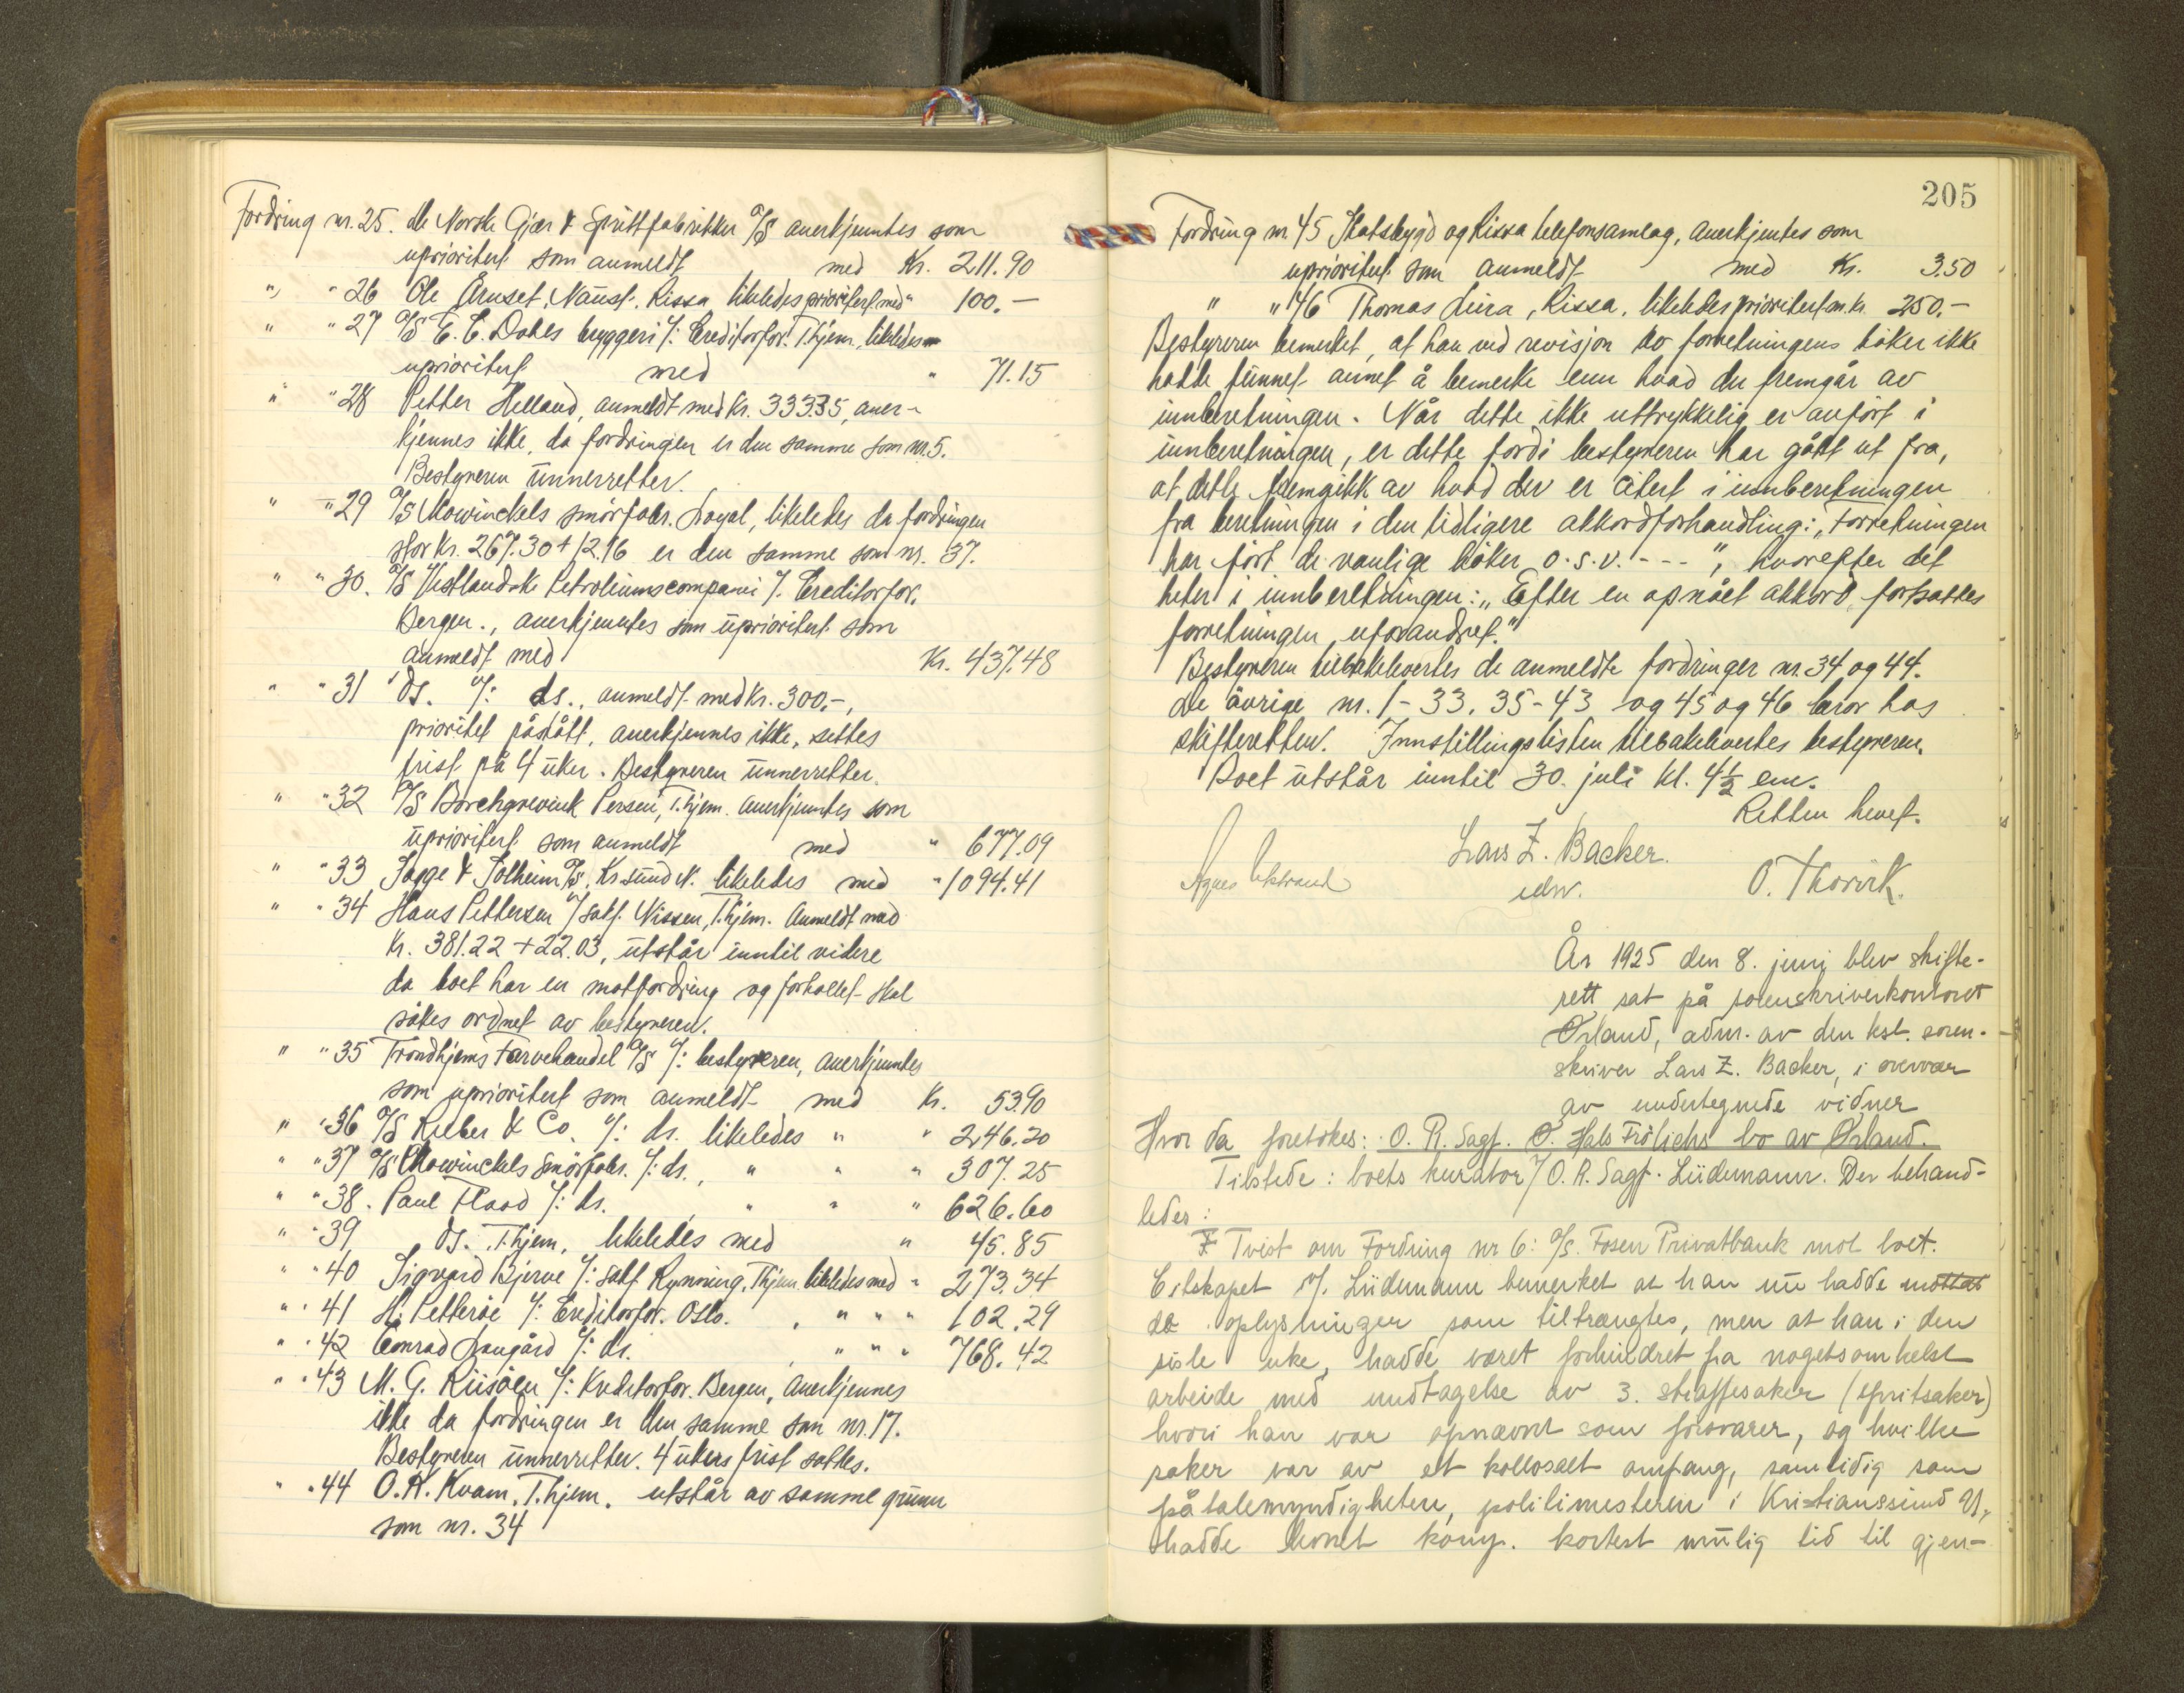 Fordring nr. 25. de Norske Gjær & Spritfabrikker A/S anerkjentes som
uprioritert som anmeldt med Kr. 211.90
" " 26 Ole Åruset, Naust. Rissa likeledes prioritert med " 100.-
" " 27 A/S E. C. Dahls bryggeri v/: Creditorfor. T.hjem, likeledes
uprioritert med " 71.15
" " 28 Petter Helland, anmeldt med kr. 333.35, aner-
kjennes ikke, da fordringen er den samme som nr. 5.
Bestyreren unnerretter.
" " 29 A/S Mowinckels smörfabr. Loyal, likeledes da fordringen
stor kr. 267.30 + 12.16 er den samme som nr. 37.
" " 30. A/S Vestlandske Petroleumscompani v/. Creditorfor.
Bergen., anerkjentes som uprioritert som
anmeldt med Kr. 437.48
" " 31 ds. v/: ds., anmeldt med kr. 300.-,
prioritet påstått, anerkjennes ikke, settes
frist på 4 uker. Bestyreren unnerretter.
" " 32 A/S Borchgrevink Persen, T.hjem. anerkjentes som
uprioritert som anmeldt med " 677.09
" " 33 Jagge & Solheim A/S, Kr.sund N. likeledes med " 1094.41
" " 34 Hans Pettersen v/ sakf. Nissen, T.hjem. Anmeldt med
kr. 381.22 + 22.03, utstår inntil videre
da boet har en motfordring og forholdet skal
søkes ordnet av bestyreren.
" " 35 Trondhjems Farvehandel A/S v/: bestyreren, anerkjentes
som uprioritert som anmeldt med Kr. 53.90
" " 36 A/S Rieber & Co. v/: ds. likeledes " " 246.20
" " 37 A/S Mowinckels Smörfabr. v/: ds., " " " 307.25
" " 38. Paul Flood v/: ds. " " " 626.60
" " 39 ds. T.hjem, likeledes med " 45.85
" " 40 Sigvard Bjerve v/: sakf. Rynning, Thjem likeledes med " 273.34
" " 41 H. Petterøe v/: Creditorfor. Oslo. , " " " 102.29
" " 42 Conrad Langård v/: ds. , " " " 768.42
" " 43 M. G. Riisøen v/: Kreditorfor. Bergen, Anerkjennes
ikke da fordringen er den samme som nr. 17.
Bestyreren unnerretter. 4 ukers frist sattes.
" " 44 O. K. Kvam, T.hjem. utstår av samme grunn
som nr. 34
205
Fordring nr. 45 Stadsbygd og Rissa telefonsamlag, anerkjentes som
uprioritert som anmeldt med Kr. 3.50
" " 46 Thomas Leira, Rissa, likeledes prioritert m. kr. 250.-
Bestyreren bemerket, at han ved revisjon av forretningens bøker ikke
hadde funnet annet å bemerke enn hvad der fremgår av
innberetningen. Når dette ikke uttrykkelig er anført i
innberetningen, er dette fordi bestyreren har gått ut fra,
at dette fremgikk av hvad der er citert i innberetningen
fra beretningen i den tidligere akkordforhandling: „Forretningen
har ført de vanlige bøker o.s.v. - - - ", hvorefter det
heter i innberetningen: „Efter en opnået akkord fortsattes
forretningen uforandret."
Bestyreren tilbakelevertes de anmeldte fordringer nr. 34 og 44.
de øvrige nr. 1 - 33. 35 - 43 og 45 og 46 beror hos
skifteretten. Innstillingslisten tilbakelevertes bestyreren.
Boet utstår inntil 30. juli kl. 4½ em.
Retten hevet.
Lars Z. Backer.
Agnes
O. Thorvik.
År 1925 den 8. juni blev skifte-
rett sat på sorenskriverkontoret
Ørland, adm. av den kst. soren-
skriver Lars Z. Backer, i overvær
av undertegnede vidner
Hvor da foretokes: O. R. Sagf. O. Hals Frölichs bo av Ørland.
Tilstede: boets kurator v/ O. R. Sagf. Lüdemann. Der behand-
ledes:
Tvist om Fordring nr 6: A/S. Fosen Privatbank mot boet.
v/. Lüdemann bemerket at han nu hadde mottat
de oplysninger som tiltrængtes, men at han i den
siste uke, hadde været forhindret fra nogetsomhelst
arbeide med undtagelse av 3. straffesaker (spritsaker)
hvori han var opnævnt som forsvarer, og hvilke
saker var av et kollosalt omfang, samtidig som
påtalemyndigheten, politimesteren i Kristianssund N,
hadde levnet kony. kortest mulig tid til gjen-